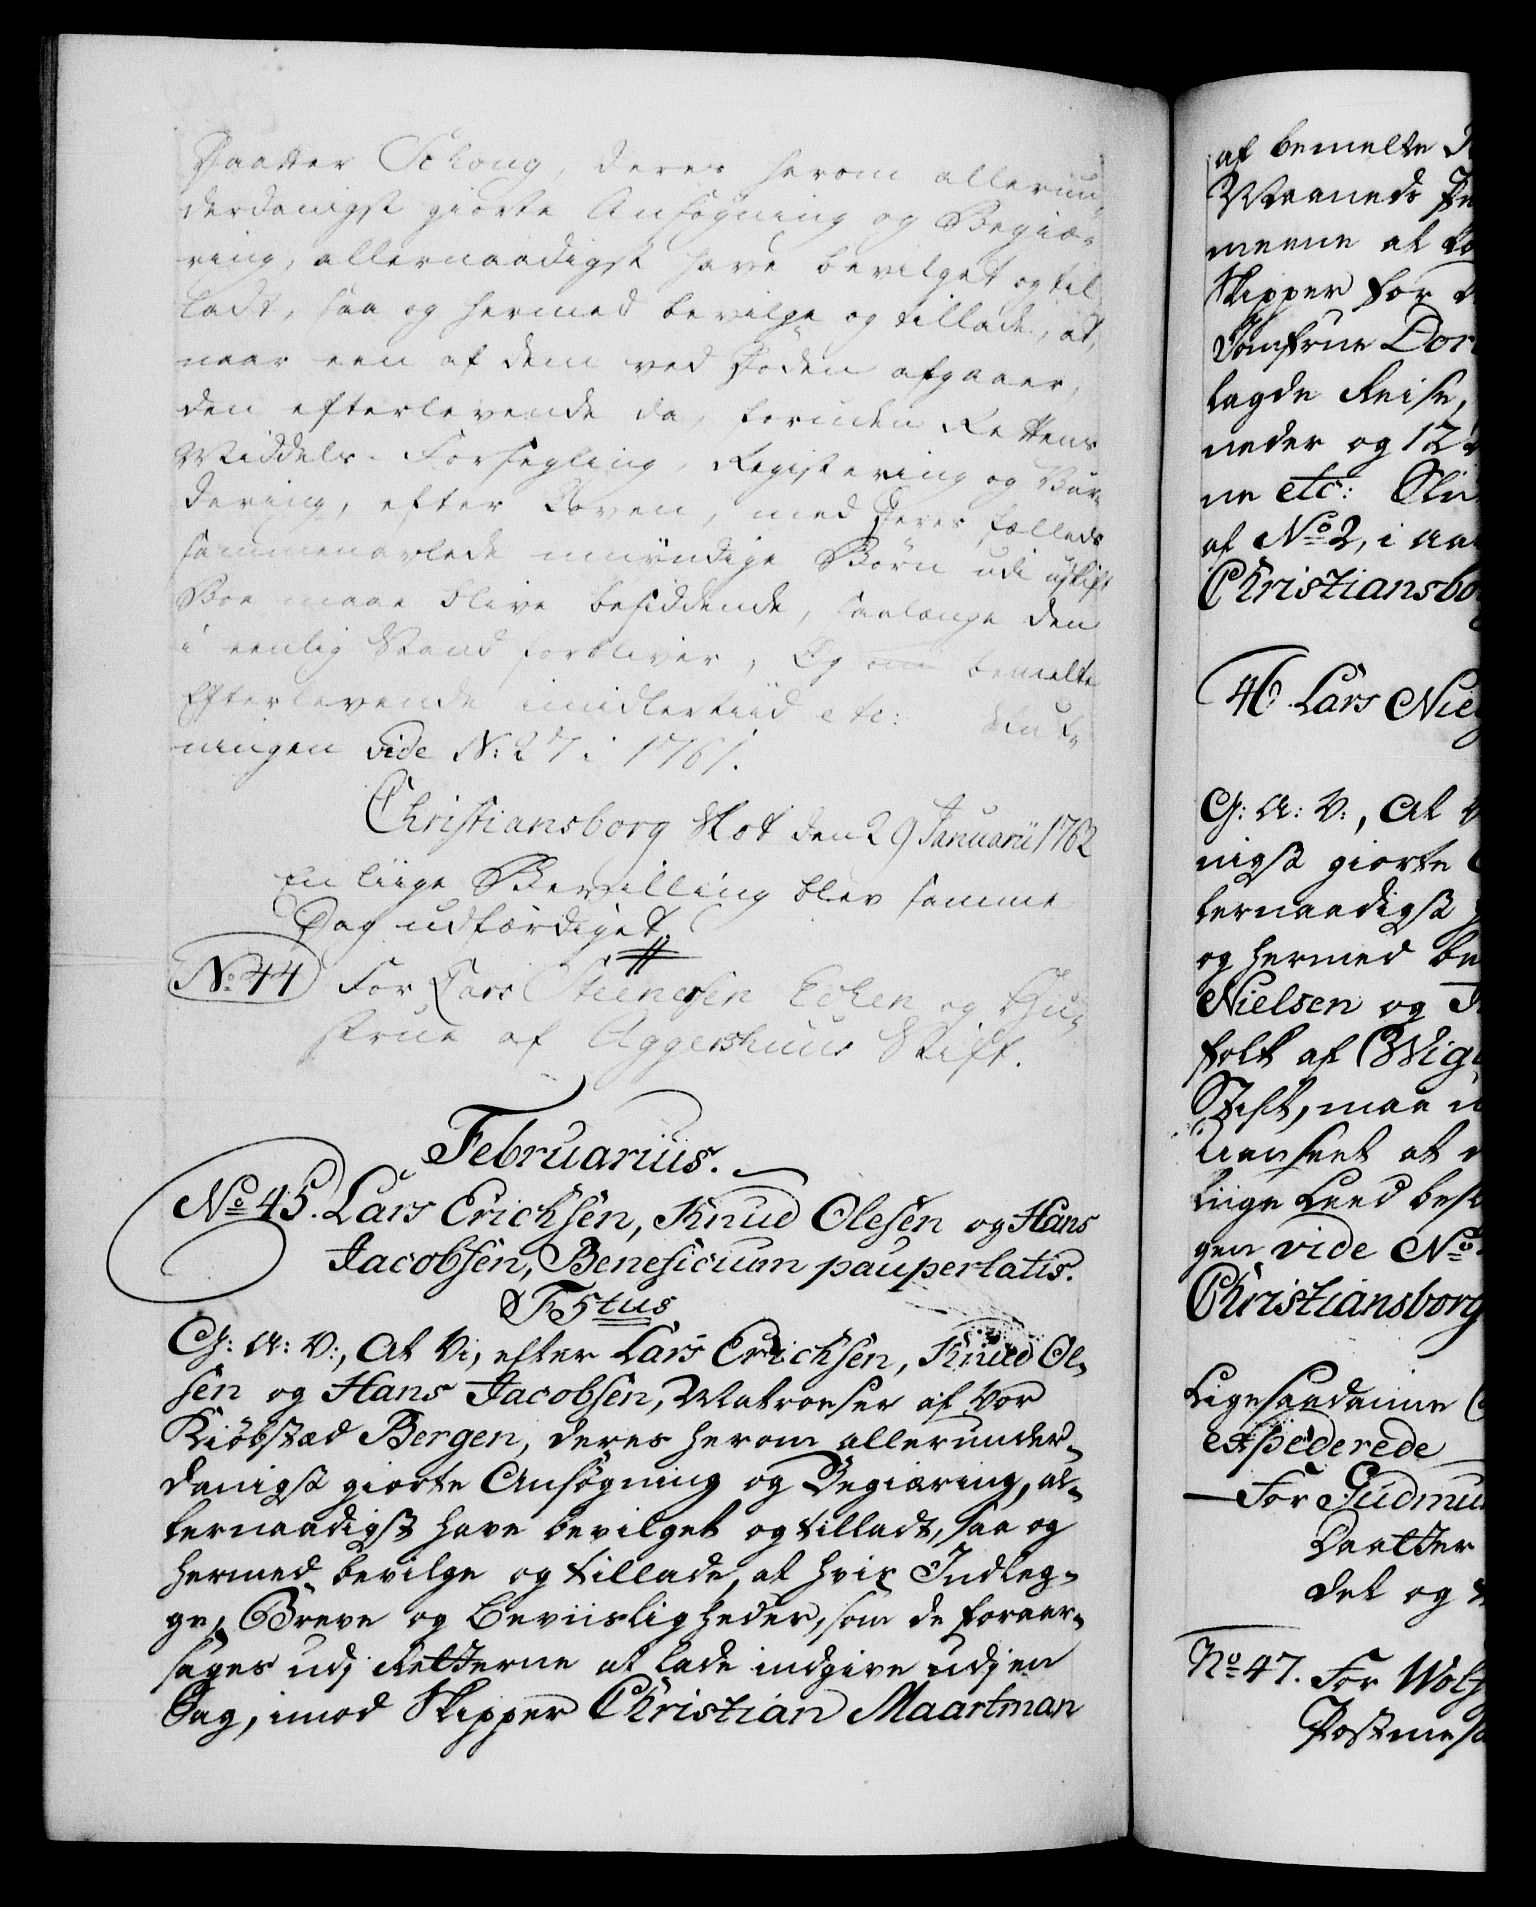 Daatter Schong, deres herom allerun-
derdanigst giorte Ansøgning og Begiæ-
ring, allernaadigst have bevilget og til-
ladt, saa og hermed bevilge og tillade, at,
naar een af dem ved Døden afgaaer,
den efterlevende da, foruden Rettens
Middels Forsegling, Registering og Vur-
dering, efter Loven, med Deres fælleds
sammenavlede umÿndige Børn udi uskift
Boe maae blive besiddende, saalænge den
i eenlig Stand forbliver, Og om bemelte
Efterlevende imidlertiid etc: Slut-
ningen vide N: 27 i 1761.
Christiansborg Slot den 29 Januarii 1762
En liige Bevilling blev samme
Dag udfærdiget
No 44 For Lars Steenesen Echen og Hu-
strue af Aggershuus Stift.
Februarius.
No 45. Lars Erichsen, Knud Olesen og Hans
Jacobsen, Beneficium paupertatis.
F 5tus
G: A: V:, At Vi, efter Lars Erichsen, Knud Ol-
sen og Hans Jacobsen, Matroeser af Vor
Kiøbstæd Bergen, deres herom allerunder-
danigst giorte Ansøgning og Begiæring, al-
lernaadigst have bevilget og tilladt, saa og
hermed bevilge og tillade, at hvis Indleg-
ge, Breve og Beviisligheder, som de foraar-
sages udj Retterne at lade indgive udj en
Sag, imod Skipper Christian Maartman
af bemelte
Maaneds
meene at
Skipper for
Jomfrue
lagde Reise,
neder og 12
ne etc:
af No 2, i
Christiansbo
46. Lars
G: A: V:, At
nigst giorte
lernaadigst
og hermed be
Nielsen og
folk af
Stift, maa
uanseet at
liige Leed
gen vide No
Christiansborg
Ligesaadanne
expederede
— For Gudmu
Daatter
del og
No 47. For
Postme